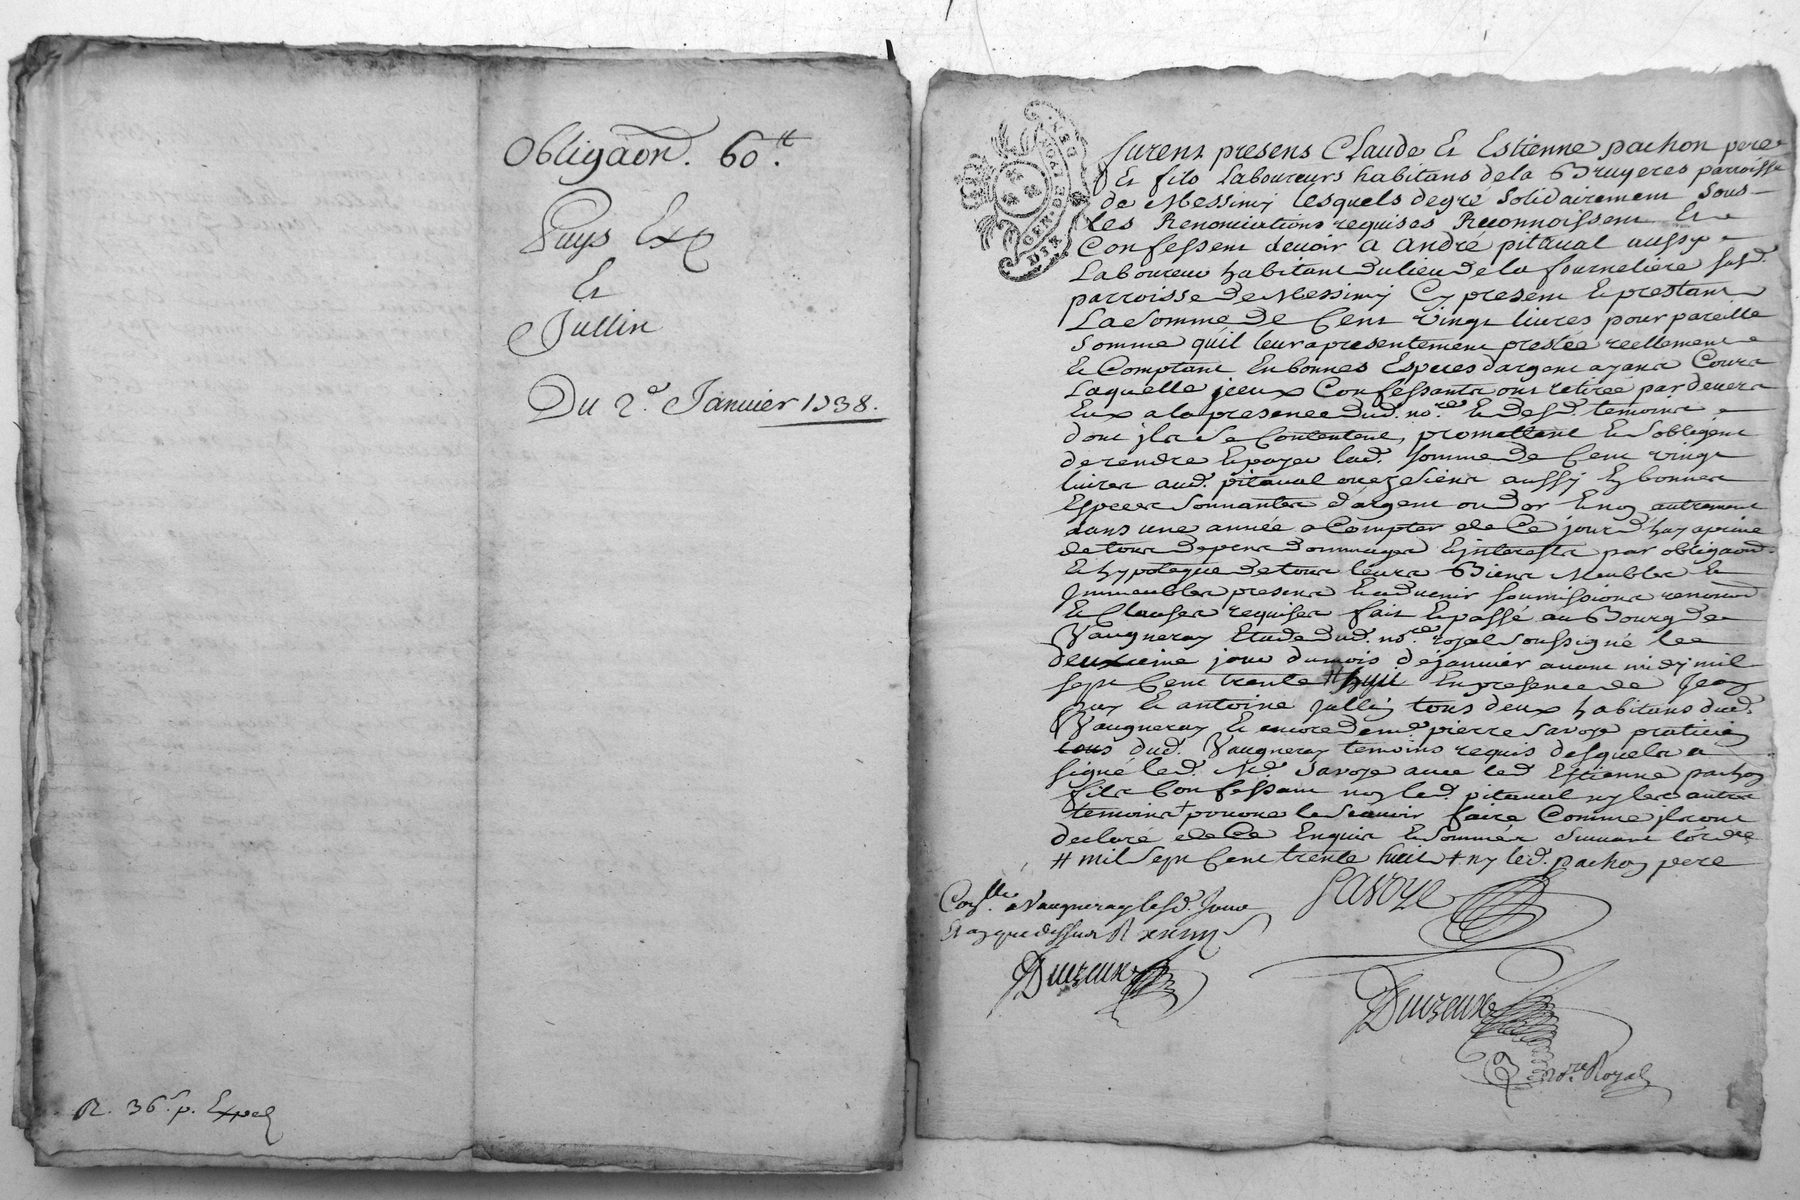 Obligaõn. 60.ᵗᵗ
Puys
Et
Jullin
Du 2.ᵉ Janvier 1738.
R. 36 ˢ. p. Exped
GEN. DE LYON
DIX
furent presens Claude Et Estienne pachon pere
Et fils Laboureurs habitans de la Bruyeres parroisse
de Messimy lesquels de gré solidairement sous
les Renonciations requises Reconnoissent Et
Confessent devoir a André pitaval aussy
Laboureur habitant du lieu de la fourneliere susd.
parroisse de Messimy Cy present Et prestant
La somme de Cent vingt livres pour pareille
somme quil leur a presentement prestée reellement
Et Comptant En bonnes Especes dargent ayant Cours
Laquelle jceux Confessants ont retirée par devers
Eux a la presence dud. noʳᵉ. Et desd. temoins
dont jls se Contentent, promettent Et sobligent
de rendre Et payer lad. somme de Cent vingt
livres aud. pitaval ou es siens aussy En bonnes
Especes sonnantes d'argent ou d'or Et non autrement
dans une année a Compter de Ce jour d'huy a peine
de tous depens dommages Et jnterests par obligaõn.
Et hypoteque de tous leurs Biens Meubles Et
Jmmeubles presens Et advenir soumissions renond
Et Clauses requises fait Et passé au Bourg de
Vaugneray Etude dud. noʳᵉ. royal soussigné le
deuxieme jour du mois de janvier avant midy mil
sept Cent trente # huit En presence de Jean
puy Et antoine Jullin tous deux habitans dud.
Vaugneray Et encore de mᵉ. pierre Savoye praticien
tous dud. Vaugneray temoins requis desquels a
signé led. Mᵉ Savoye avec led Estienne pachon
fils Confessant non led. pitaval ny les autres
temoins + pour ne le scavoir faire Comme jls ont
declaré de Ce Enquis Et sommés suivant lordᶜᵉ
# mil sept Cent trente huit + ny led. pachon pere
Conʳˡˡᵉ. a Vaugneray lesd. Jour
Et an que dessus R
Savoye
Duizeux
Duizeux
noʳᵉ. Royal